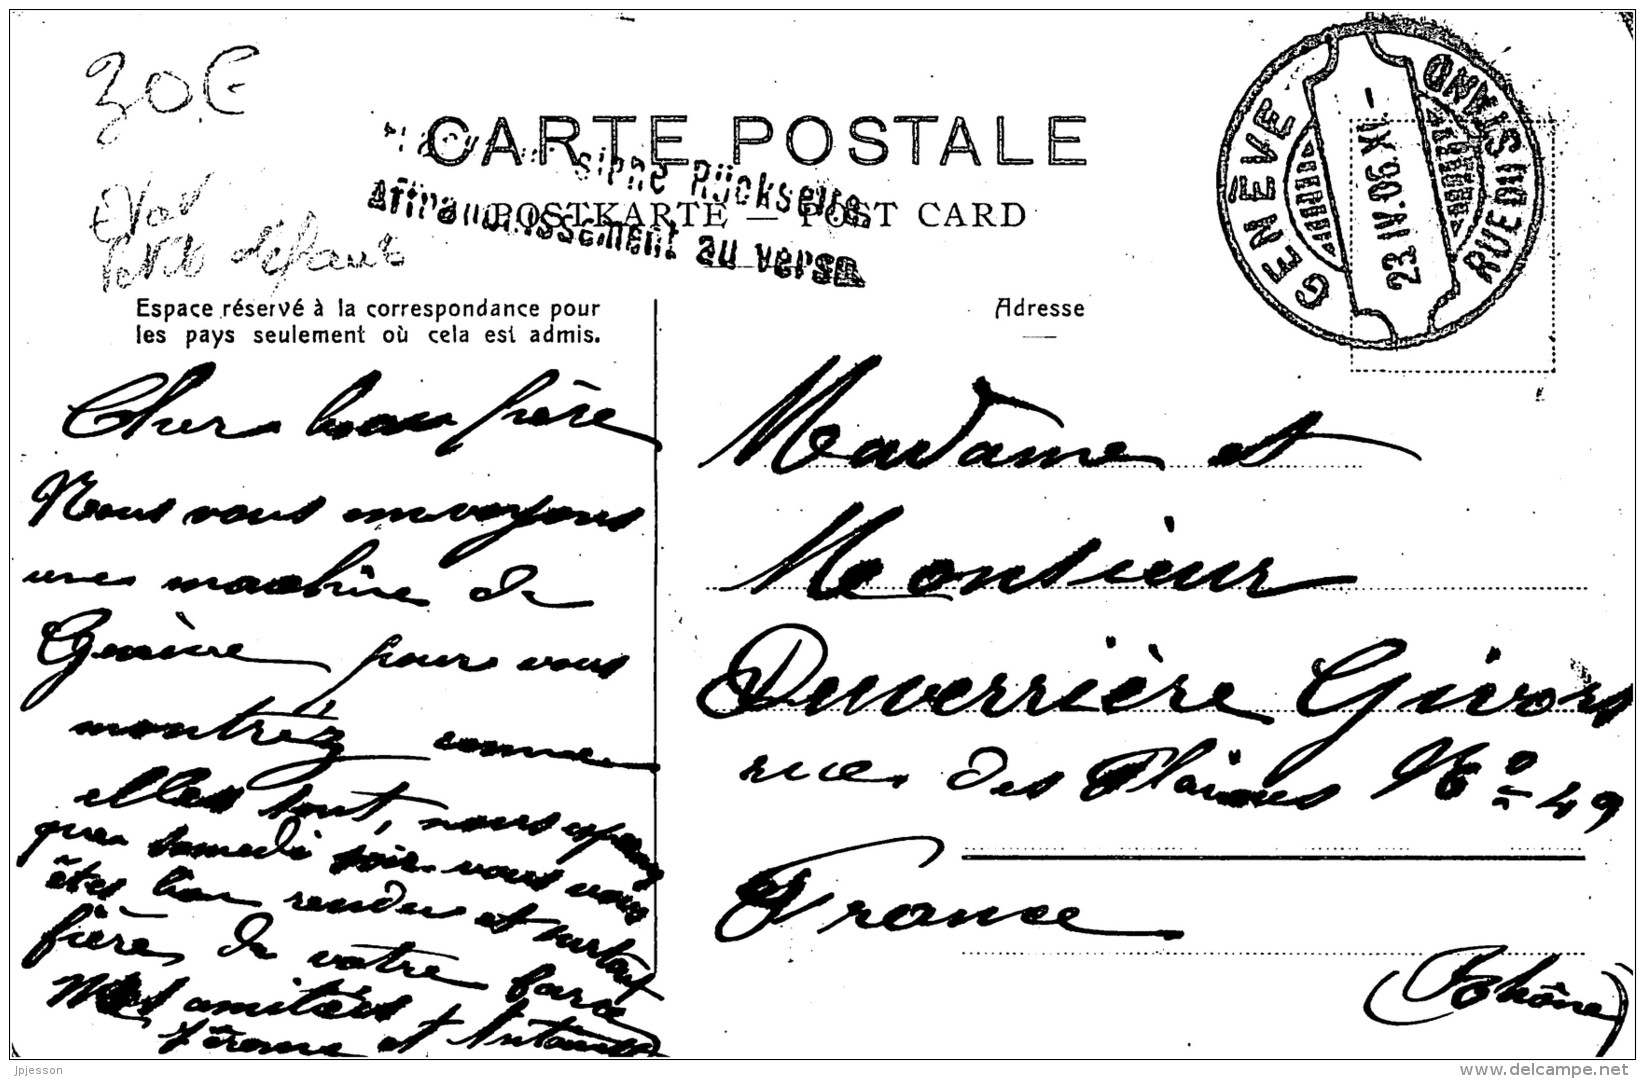 30€
CARTE POSTALE
siehe Rückseite
Affranchissement au verso
POSTKARTE — POST CARD
GENÈVE
23.IV.06.XI-
RUE DU STAND
défaut
Espace réservé à la correspondance pour
les pays seulement où cela est admis.
Adresse
Cher beau frère
Nous vous envoyons
une machine de
Genève pour vous
montréz comme
elles sont, nous espérons
que samedi soir vous vous
êtes bien rendu et surtout
fière de votre
Mes amitiés
Jérome et Antoinette
Madame et
Monsieur
Duverrière Givors
rue des Plaines No 49
France
(Rhône)
jpjesson
www.delcampe.net